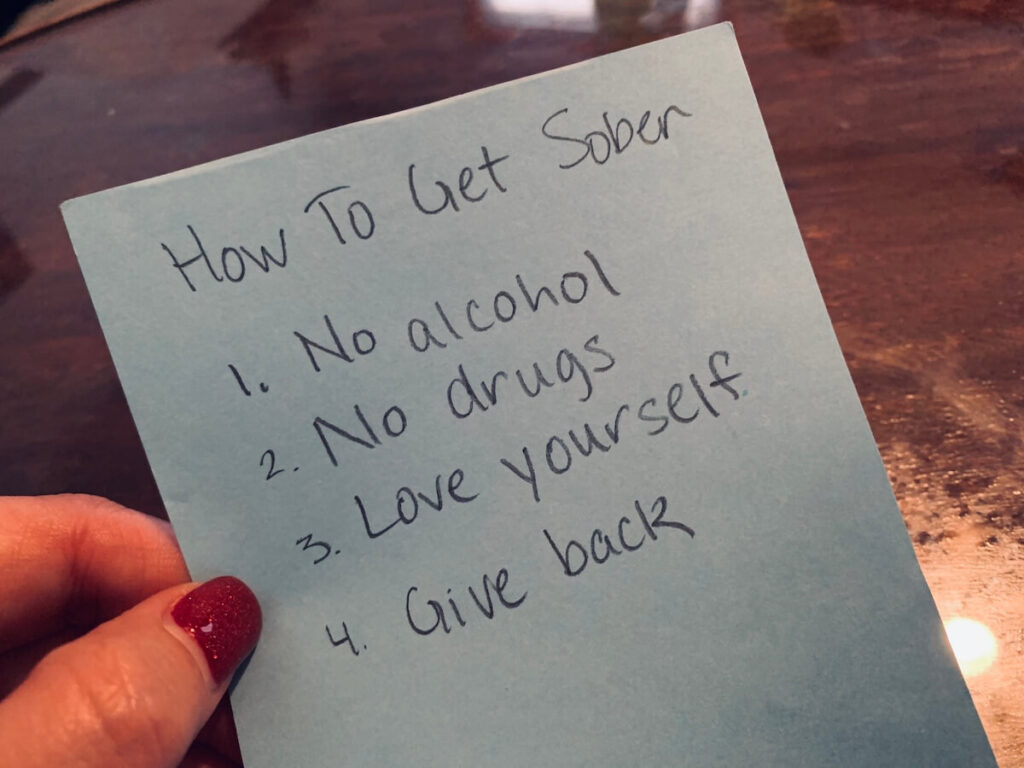 How To Get Sober
1. No alcohol
2. No drugs
3. Love yourself.
4. Give back